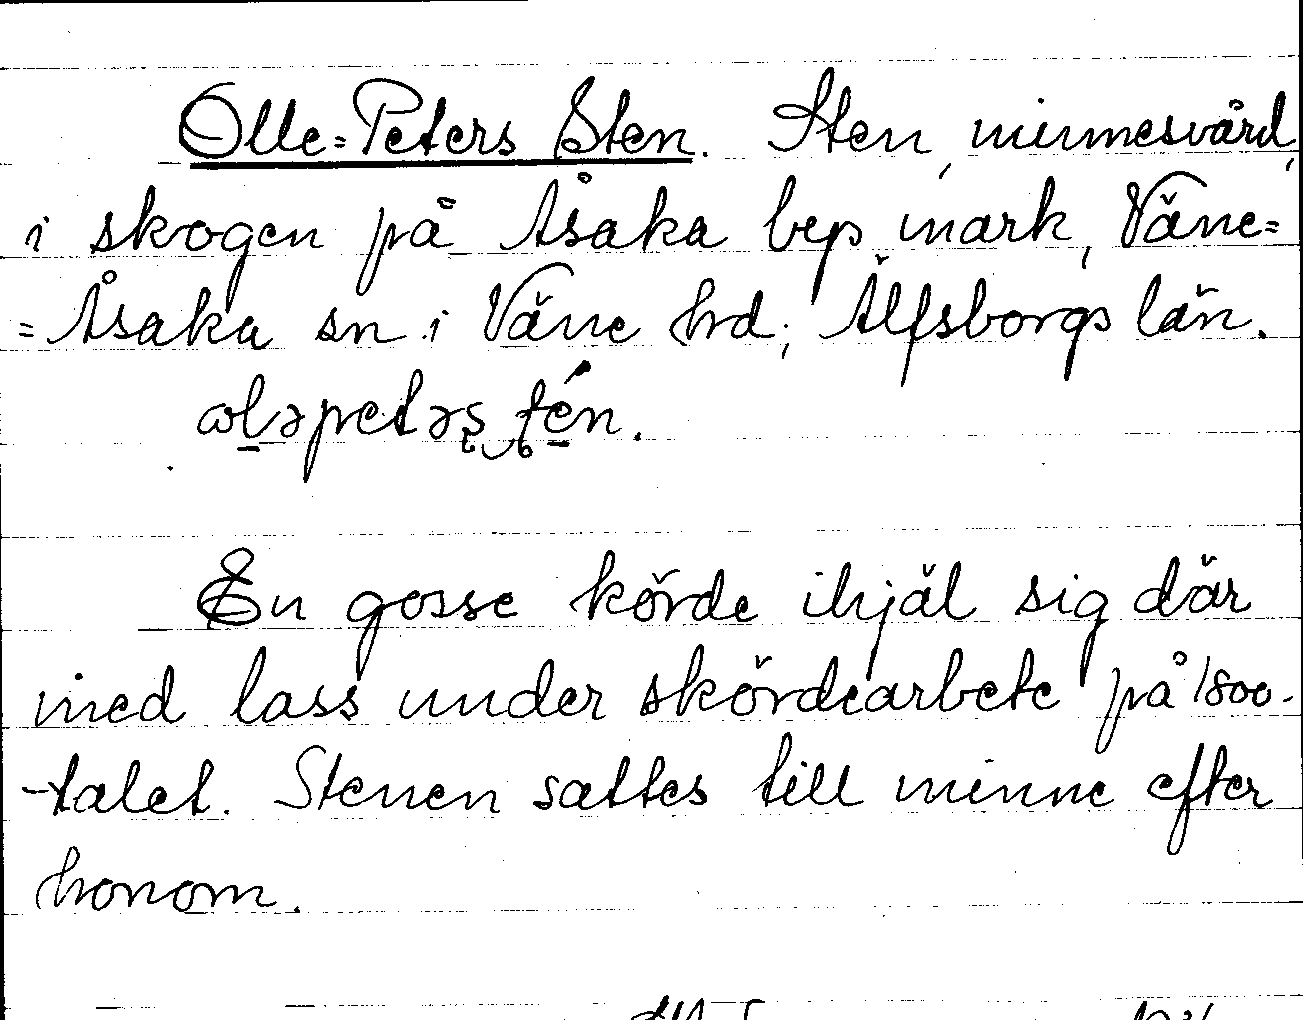 Olle=Peters Sten. Sten, minnesvård,
i skogen på Åsaka byps mark, Väne=
=Åsaka sn i Väne hrd, Älfsborgs län.
En gosse körde ihjäl sig där
med lass under skördearbete på 1800-
-talet. Stenen sattes till minne efter
honom.